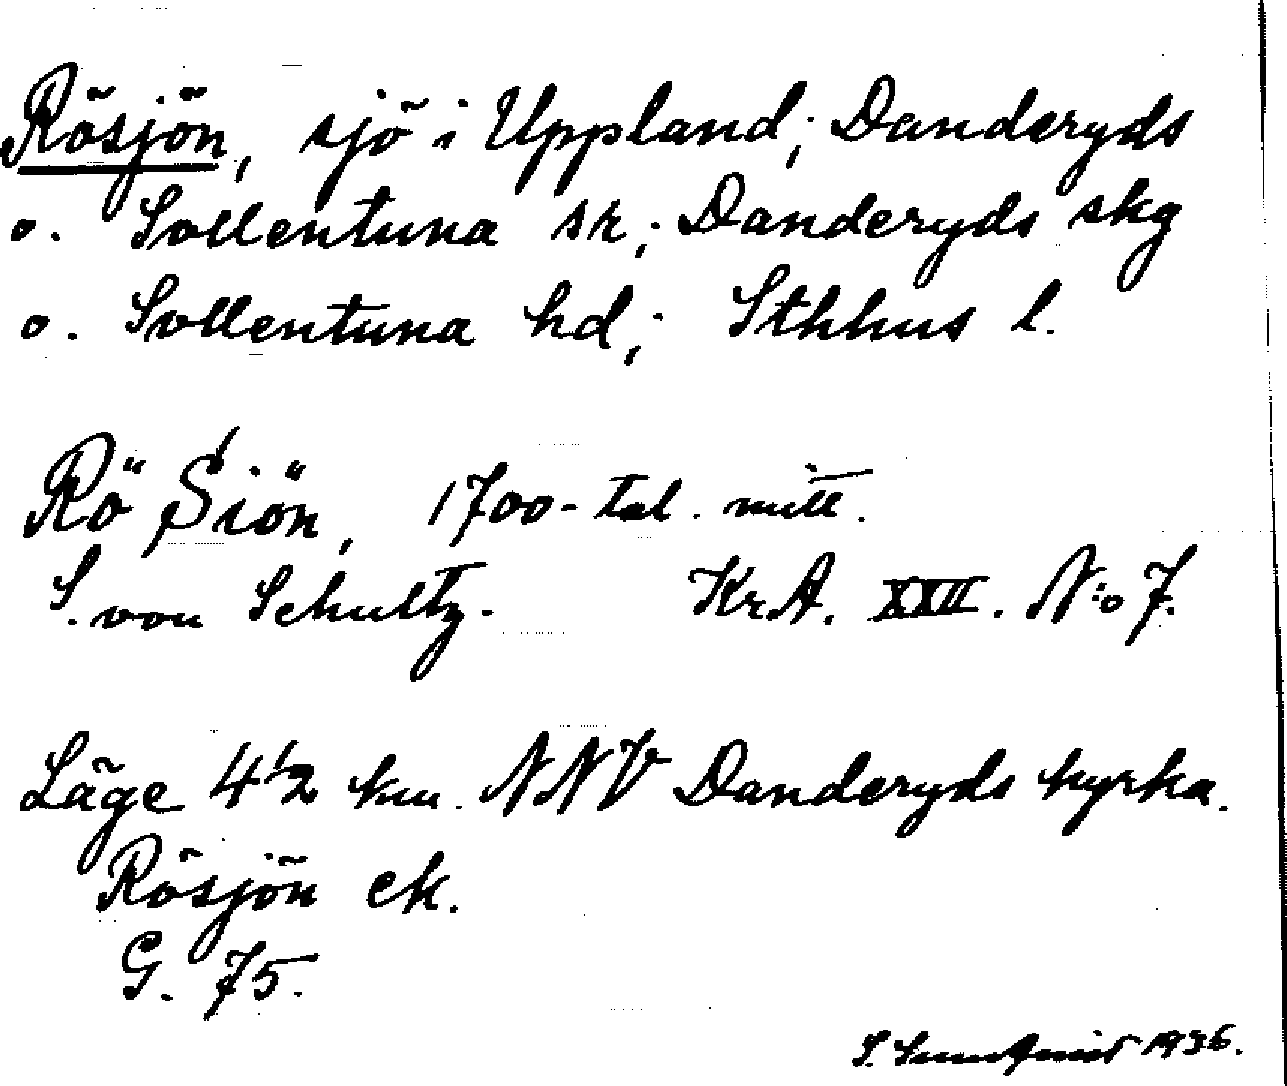 Rösjön, sjö i Uppland; Danderyds
o. Sollentuna sr; Danderyds skg
o. Sollentuna hd; Sthlms l.
Rö Siön, 1700-tal. mitt.
S. von Schultz. KrA. XXII. N:o 7.
Läge 4 1/2 km. NNV Danderyds kyrka.
Rösjön ek.
G. 75.
S. 1936.